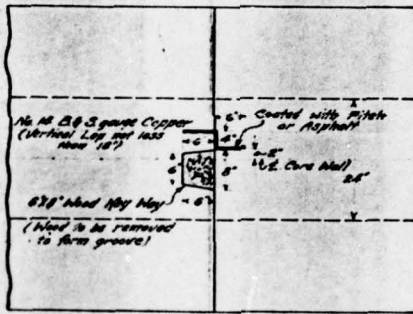 No. 14 B.& S. gauge Copper
(Vertical Lap not less
than 18")
6"
Coated with Pitch
or Asphalt
6
4"
2"
℄ Core Wall
6"
8"
24"
6"X8" Wood Key Way
6"
(Wood to be removed
to form groove)